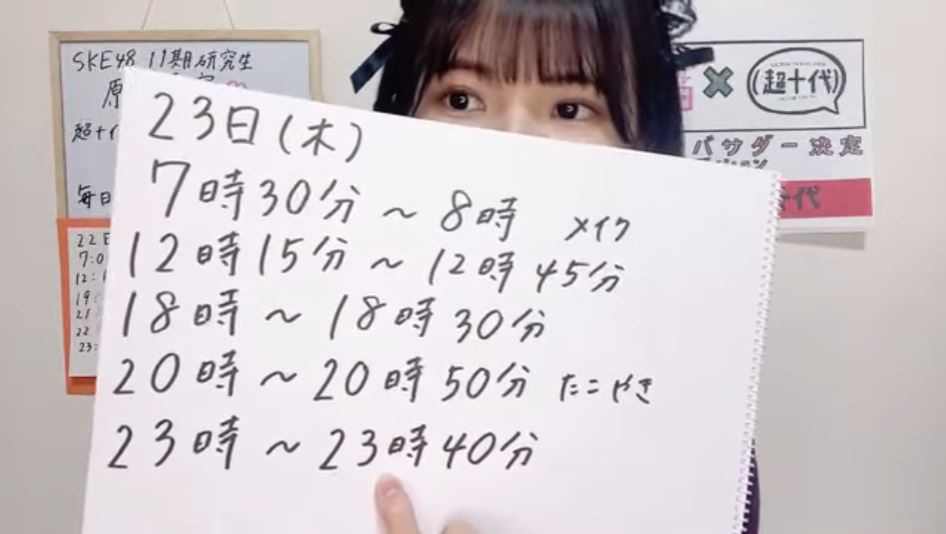 SKE48 11期研究生
原
超十
毎日
23日(木)
7時30分 ~ 8時 メイク
12時15分 ~ 12時45分
18時 ~ 18時30分
20時 ~ 20時50分 たこやき
23時 ~ 23時40分
22
7:0
12:
19
21
22
23:
×
(超十代)
バサダー決定
十代